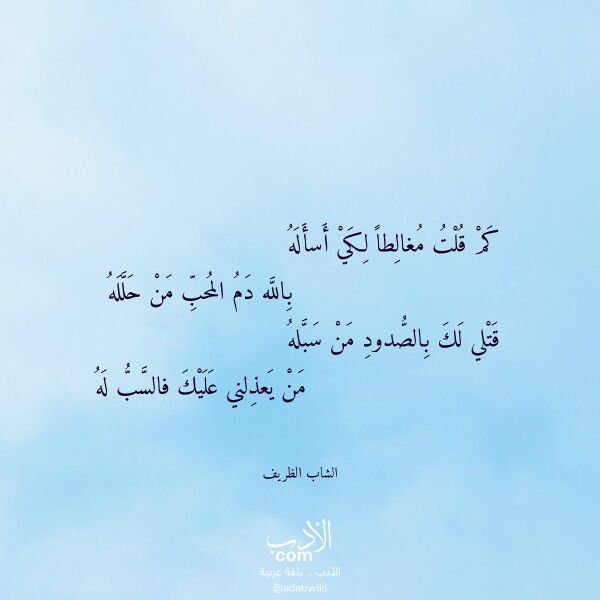 كَمْ قُلْتُ مُغالِطاً لِكَيْ أَسأَلَهُ
بِاللَّه دَمُ المُحبِّ مَنْ حَلَّلَهُ
قَتْلي لَكَ بِالصُّدودِ مَنْ سَبَّلهُ
مَنْ يَعذِلني عَلَيْكَ فالسَّبُّ لَهُ
الشاب الظريف
الأدب
com
الأدب .. بلغة عربية
@adabwiki